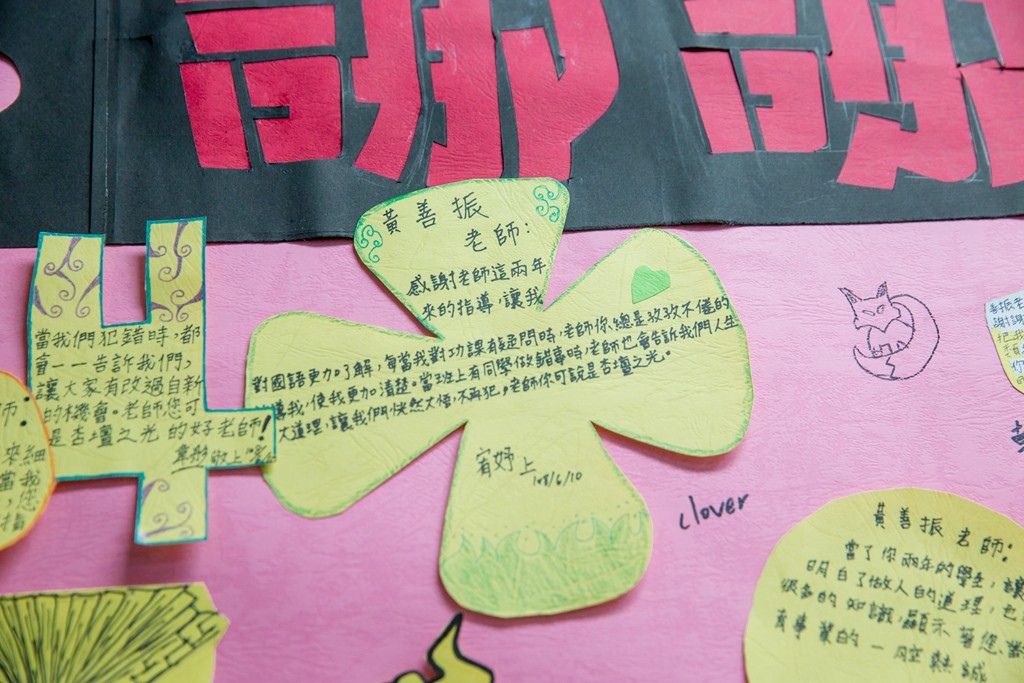 謝謝
黃善振
老師:
感謝老師這兩年
來的指導,讓我
對國語更加了解,每當我對功課有疑問時,老師你總是孜孜不倦的
導我,使我更加清楚。當班上有同學做錯事時,老師也會告訴我們人生
大道理,讓我們恍然大悟,不再犯,老師你可說是杏壇之光。
宥妤上
108/6/10
當我們犯錯時,都
會一一告訴我們,
讓大家有改過自新
的機會。老師您可
是杏壇之光的好老師!
敬上
師:
來細
當我
,您
指
clover
善振老
謝謝
把我
黃善振老師:
當了你兩年的學生,讓
明白了做人的道理,也
很多的知識,顯示著您對
育事業的一腔熱誠